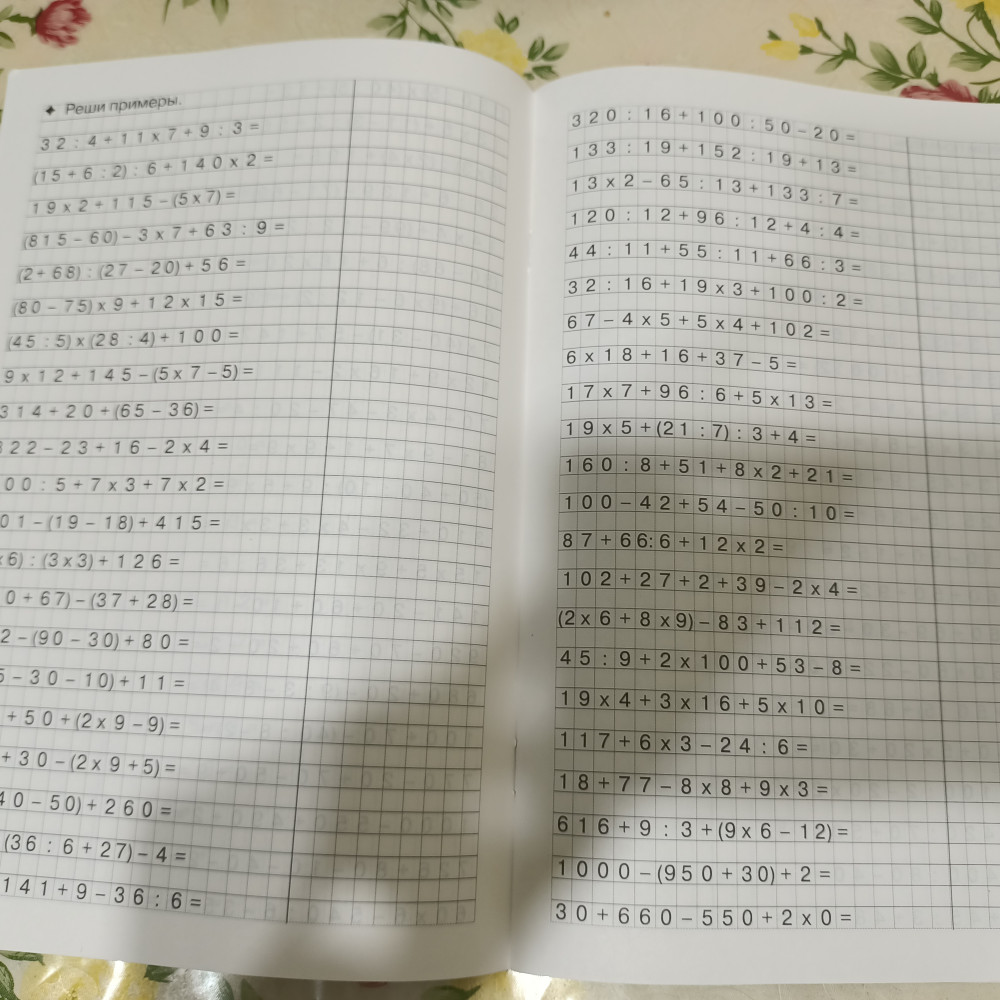 Реши примеры.
32 : 4 + 11 x 7 + 9 : 3 =
(15 + 6 : 2) : 6 + 140 x 2 =
19 x 2 + 115 – (5 x 7) =
(815 – 60) – 3 x 7 + 63 : 9 =
(2 + 68) : (27 – 20) + 56 =
(80 – 75) x 9 + 12 x 15 =
(45 : 5) x (28 : 4) + 100 =
9 x 12 + 145 – (5 x 7 – 5) =
314 + 20 + (65 – 36) =
22 – 23 + 16 – 2 x 4 =
00 : 5 + 7 x 3 + 7 x 2 =
01 – (19 – 18) + 415 =
x 6) : (3 x 3) + 126 =
0 + 67) – (37 + 28) =
2 – (90 – 30) + 80 =
– 30 – 10) + 11 =
+ 50 + (2 x 9 – 9) =
+ 30 – (2 x 9 + 5) =
40 – 50) + 260 =
(36 : 6 + 27) – 4 =
141 + 9 – 36 : 6 =
320 : 16 + 100 : 50 – 20 =
133 : 19 + 152 : 19 + 13 =
13 x 2 – 65 : 13 + 133 : 7 =
120 : 12 + 96 : 12 + 4 : 4 =
44 : 11 + 55 : 11 + 66 : 3 =
32 : 16 + 19 x 3 + 100 : 2 =
67 – 4 x 5 + 5 x 4 + 102 =
6 x 18 + 16 + 37 – 5 =
17 x 7 + 96 : 6 + 5 x 13 =
19 x 5 + (21 : 7) : 3 + 4 =
160 : 8 + 51 + 8 x 2 + 21 =
100 – 42 + 54 – 50 : 10 =
87 + 66 : 6 + 12 x 2 =
102 + 27 + 2 + 39 – 2 x 4 =
(2 x 6 + 8 x 9) – 83 + 112 =
45 : 9 + 2 x 100 + 53 – 8 =
19 x 4 + 3 x 16 + 5 x 10 =
117 + 6 x 3 – 24 : 6 =
18 + 77 – 8 x 8 + 9 x 3 =
616 + 9 : 3 + (9 x 6 – 12) =
1000 – (950 + 30) + 2 =
30 + 660 – 550 + 2 x 0 =